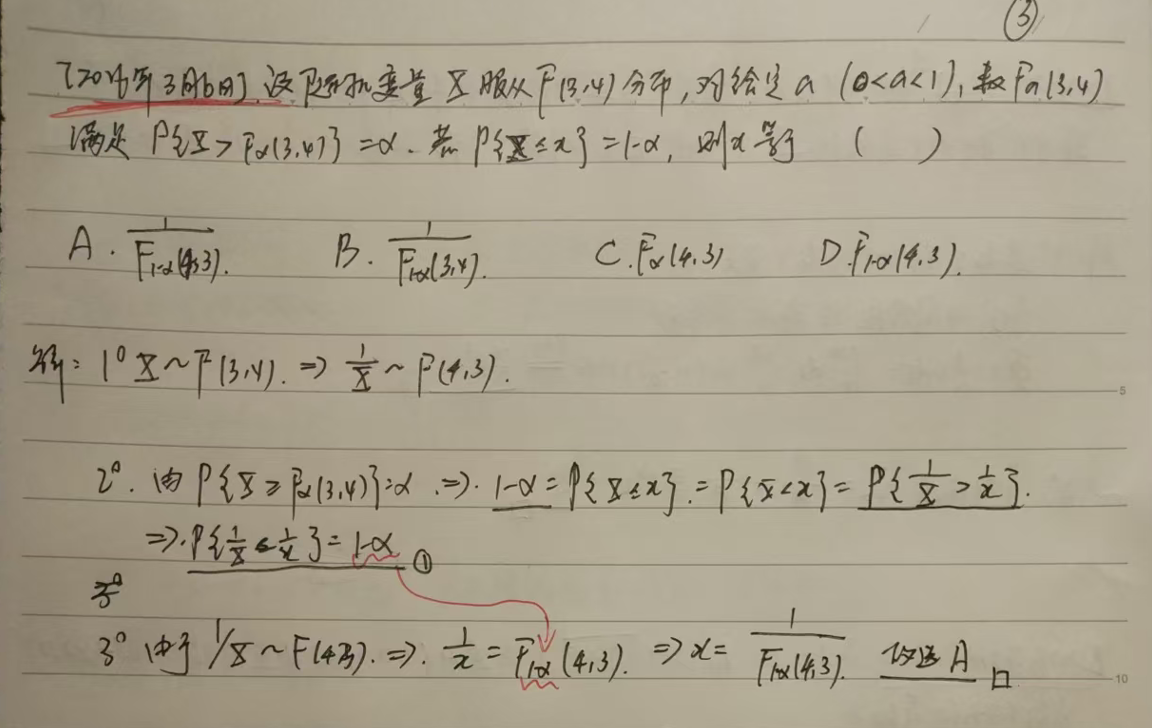 ③
[2016年3月6日] 设随机变量 X 服从 F(3,4) 分布, 对给定 α (0<α<1), 数 Fα(3,4)
满足 P{X > Fα(3,4)} = α. 若 P{X ≤ x} = 1-α, 则 x 等于 ( )
A. 1/F1-α(4,3). B. 1/F1-α(3,4). C. Fα(4,3) D. F1-α(4,3).
解: 1° X ~ F(3,4). ⇒ 1/X ~ F(4,3).
5
2°. 由 P{X > Fα(3,4)} = α. ⇒. 1-α = P{X ≤ x}. = P{X < x} = P{1/X > 1/x}.
⇒. P{1/X > 1/x} = 1-α ①
3° 由于 1/X ~ F(4,3). ⇒. 1/x = F1-α(4,3). ⇒ x = 1/F1-α(4,3). 故选 A □
10